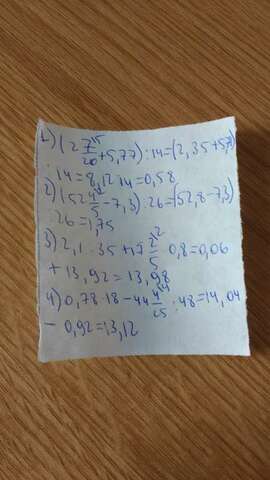 1) (2 7/20 + 5,77) : 14 = (2,35 + 5,77)
: 14 = 8,12 : 14 = 0,58
2) (52 4/5 - 7,3) : 26 = (52,8 - 7,3)
26 = 1,75
3) 2,1 : 35 + 17 2/5 · 0,8 = 0,06
+ 13,92 = 13,98
4) 0,78 · 18 - 44 4/25 : 48 = 14,04
- 0,92 = 13,12